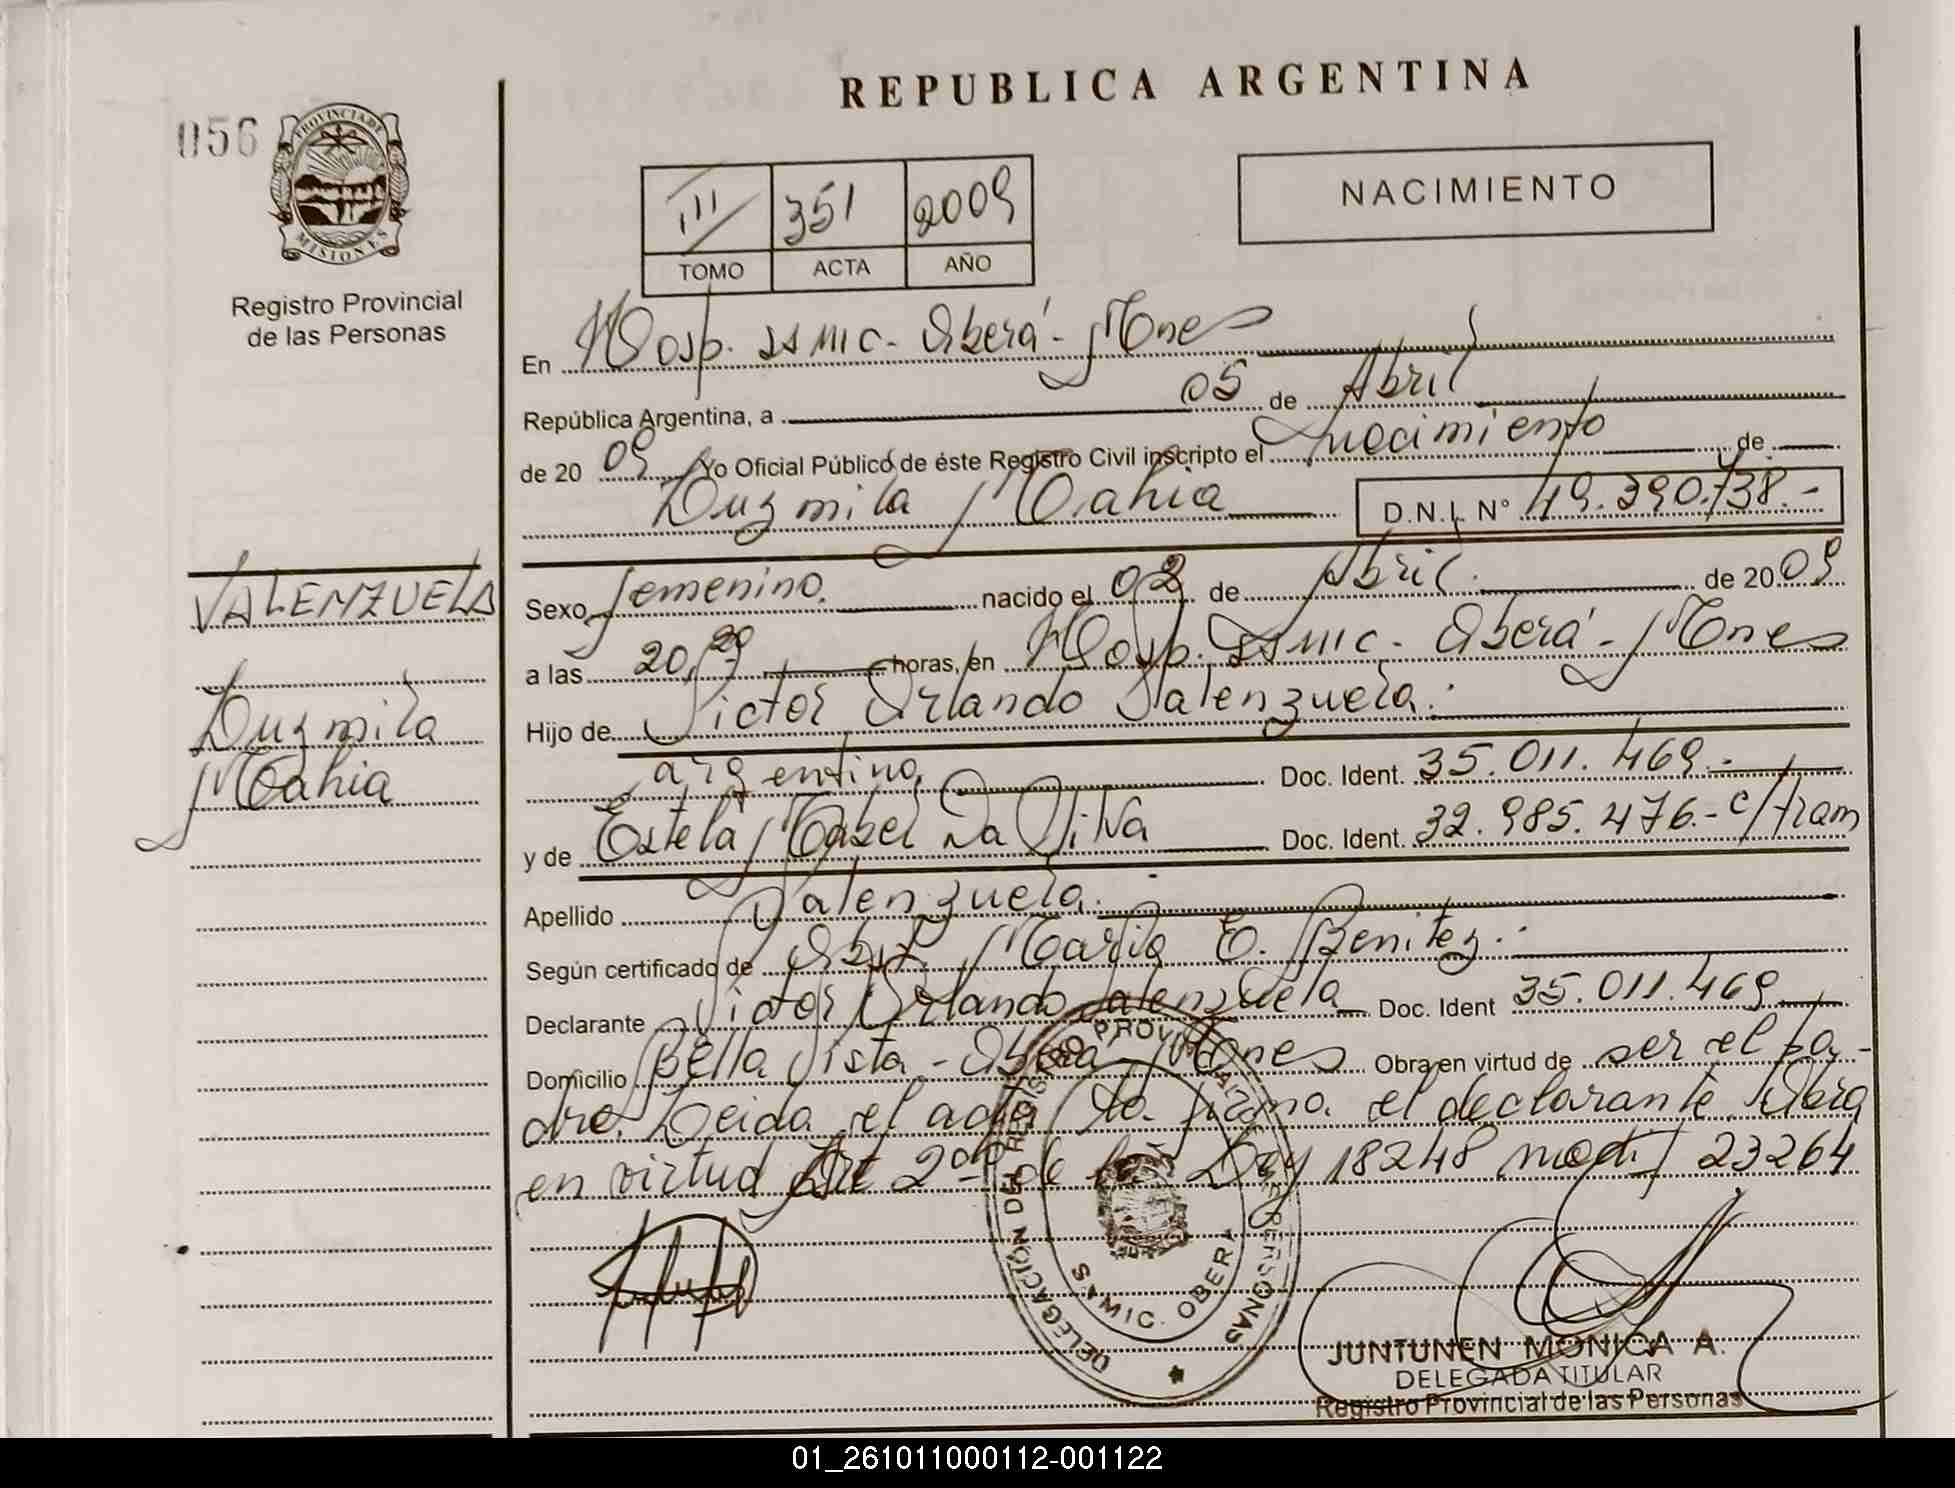 REPUBLICA ARGENTINA
056
PROVINCIA DE
MISIONES
Registro Provincial
de las Personas
III 351 2009
TOMO ACTA AÑO
NACIMIENTO
En Hosp. SAMIC - Oberá - Mnes
República Argentina, a 05 de Abril
de 20 09 Yo Oficial Público de éste Registro Civil inscripto el nacimiento de
Luzmila Mahia D.N.I. N° 49.390.738.-
VALENZUELA
Luzmila
Mahia
Sexo femenino. nacido el 02 de Abril. de 20 09
a las 20,20 horas, en Hosp. SAMIC - Oberá - Mnes
Hijo de Victor Orlando Valenzuela.
argentino Doc. Ident. 35.011.469.-
y de Estela Mabel Da Silva Doc. Ident. 32.985.476.- c/tram
Apellido Valenzuela.
Según certificado de Obst. María E. Benitez.
Declarante Victor Orlando Valenzuela Doc. Ident 35.011.469
Domicilio Bella Vista - Oberá - Mnes Obra en virtud de ser el pa-
dre. Leida el acta la firma el declarante. Obra
en virtud Art 2do de la Ley 18248 modif 23264
DELEGACIÓN DEL REGISTRO PROVINCIAL DE PERSONAS
SAMIC. OBERA
JUNTUNEN MONICA A.
DELEGADA TITULAR
Registro Provincial de las Personas
01_261011000112-001122